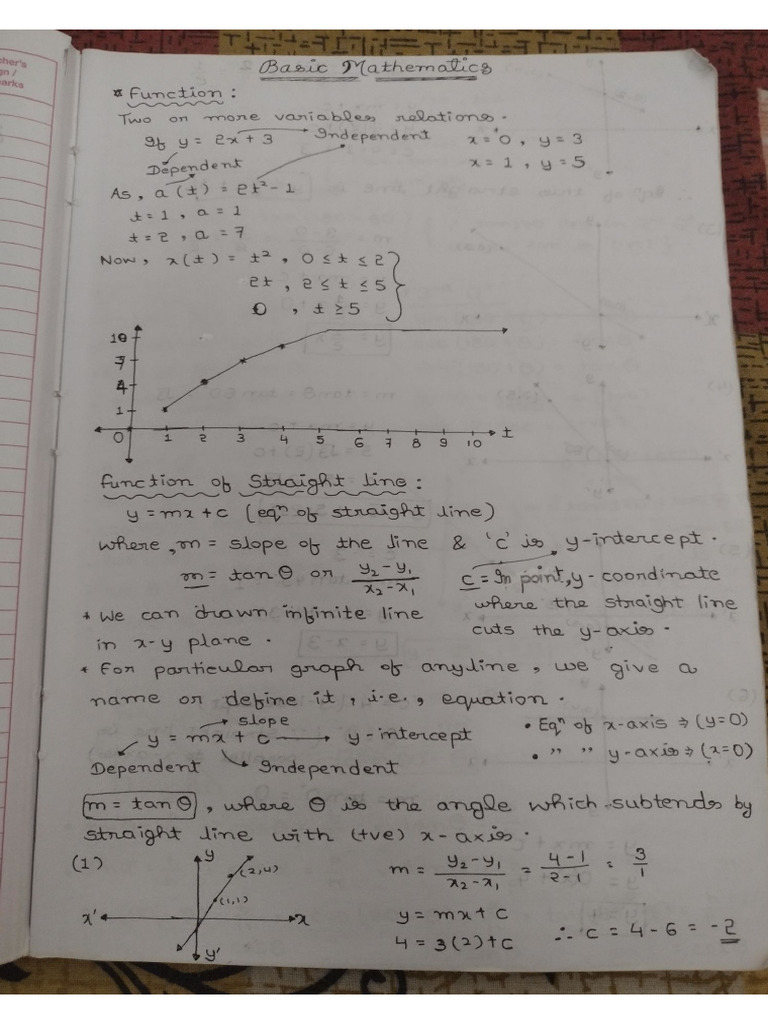 cher's
gn /
arks
Basic Mathematics
* Function :
Two or more variables relations.
If y = 2x + 3 → Independent x = 0 , y = 3
Dependent x = 1 , y = 5
As, a(t) = 2t² - 1
t = 1 , a = 1
t = 2 , a = 7
Now, x(t) = t² , 0 ≤ t ≤ 2
2t , 2 ≤ t ≤ 5
0 , t ≥ 5
10
7
4
1
0 1 2 3 4 5 6 7 8 9 10 t
Function of Straight line :
y = mx + c (eqⁿ of straight line)
where, m = slope of the line & 'c' is y-intercept.
m = tan θ or (y₂ - y₁)/(x₂ - x₁) c = In point, y - coordinate
where the straight line
cuts the y-axis.
* We can drawn infinite line
in x-y plane.
* For particular graph of anyline, we give a
name or define it, i.e., equation.
→ slope
y = mx + c → y-intercept
Dependent Independent
• Eqⁿ of x-axis ⇒ (y=0)
• " " y-axis ⇒ (x=0)
m = tan θ , where θ is the angle which subtends by
straight line with (+ve) x-axis.
(1) y
(2,4)
(1,1)
x' x
y'
m = (y₂ - y₁)/(x₂ - x₁) = (4 - 1)/(2 - 1) = 3/1
y = mx + c
4 = 3(2) + c ∴ c = 4 - 6 = -2